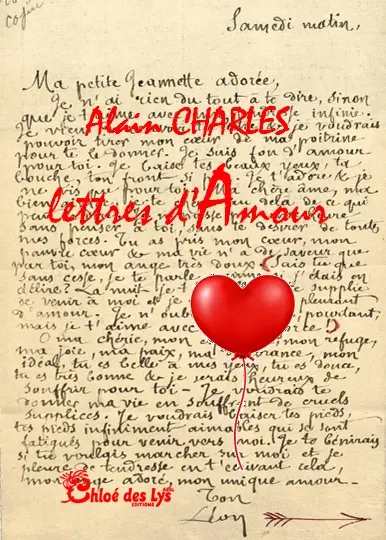 cofin
Samedi matin,
Ma petite Jeannette adorée,
Je n'ai rien du tout à te dire, sinon
que je t'aime avec infinie. Je
Alain CHARLES
je voudrais
pouvoir tirer mon cœur de ma poitrine
pour te le donner. Je suis fou d'amour
pour toi. Je baise tes beaux yeux, ta
bouche, ton front, si Je t'adore & je
ne vis que pour toi, ma chère âme, ma
lettres d'Amour
delà de ce qui
sans penser à toi, sans te désirer de toutes
mes forces. Tu as pris mon cœur, mon
pauvre cœur & ma vie n'a de saveur que
par toi, mon ange très doux. Sais-tu que
sans cesse, je te parle comme si j'étais en
délire? La nuit je t' supplie
de venir à moi et je pleurant
d'amour. Je n'oub pourtant,
mais je t'aime avec
O ma chérie, mon mon refuge,
ma joie, ma paix, ma mon
idéal, tu es belle à mes yeux, tu es douce,
tu es très bonne & je serais heureux de
souffrir pour toi. Je voudrais te
donner ma vie en souffrant de cruels
supplices. Je voudrais baiser tes pieds,
tes pieds infiniment aimables qui se sont
fatigués pour venir vers moi. Je te bénirais
si tu voulais marcher sur moi et je
pleure de tendresse en t'écrivant cela,
mon ange adoré, mon unique amour.
Chloé des Lys
EDITIONS
Ton
Léon